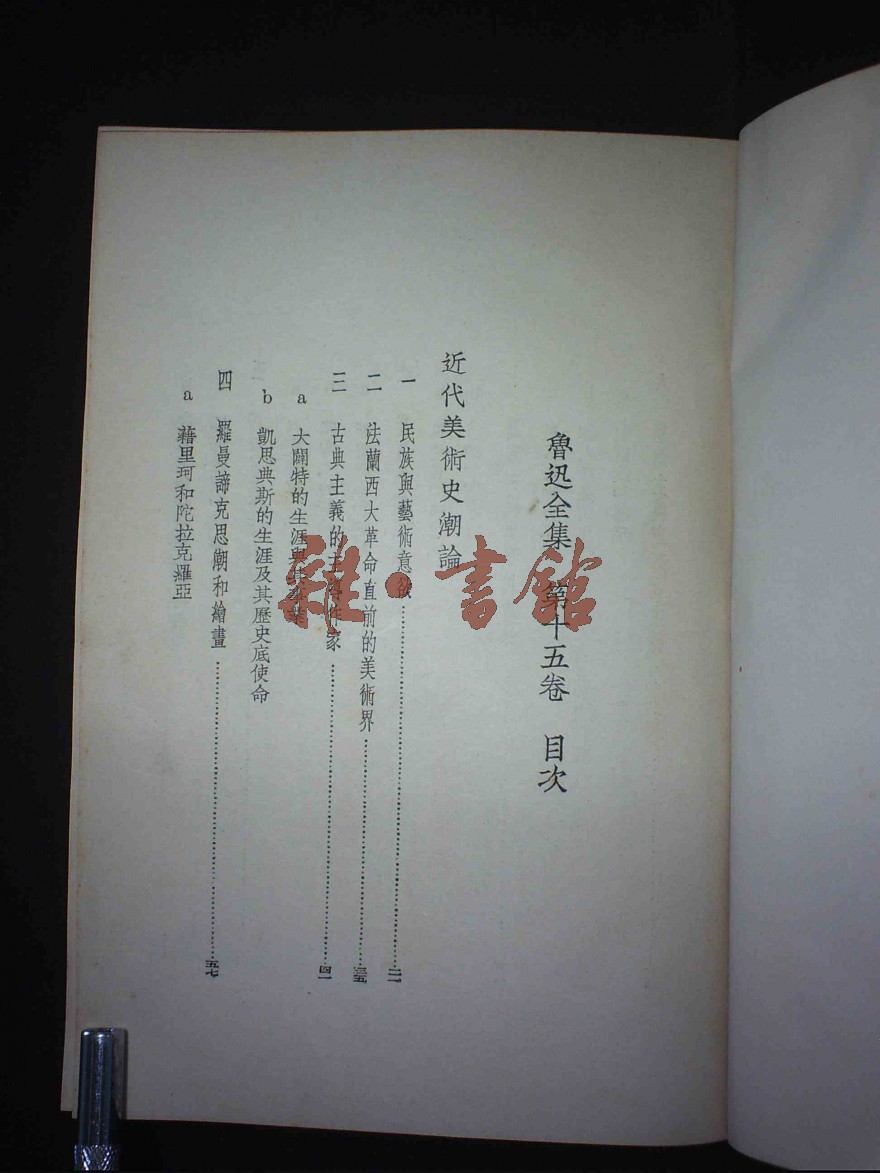 魯迅全集 第十五卷 目次
近代美術史潮論
一 民族與藝術意欲……………………二一
二 法蘭西大革命直前的美術界……………………三五
三 古典主義的主導作家……………………四一
a 大闢特的生涯與其事業
b 凱思典斯的生涯及其歷史底使命
四 羅曼諦克思潮和繪畫……………………五七
a 藉里珂和陀拉克羅亞
雜·書館